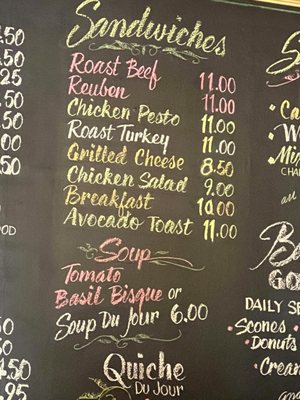 .50
.50
.25
.50
.50
.50
.00
Sandwiches
Roast Beef 11.00
Reuben 11.00
Chicken Pesto 11.00
Roast Turkey 11.00
Grilled Cheese 8.50
Chicken Salad 9.00
Breakfast 10.00
Avocado Toast 11.00
Soup
Tomato
Basil Bisque or
Soup Du Jour 6.00
Quiche
Du Jour
DAILY SE
• Scones •
• Donuts
• Cream